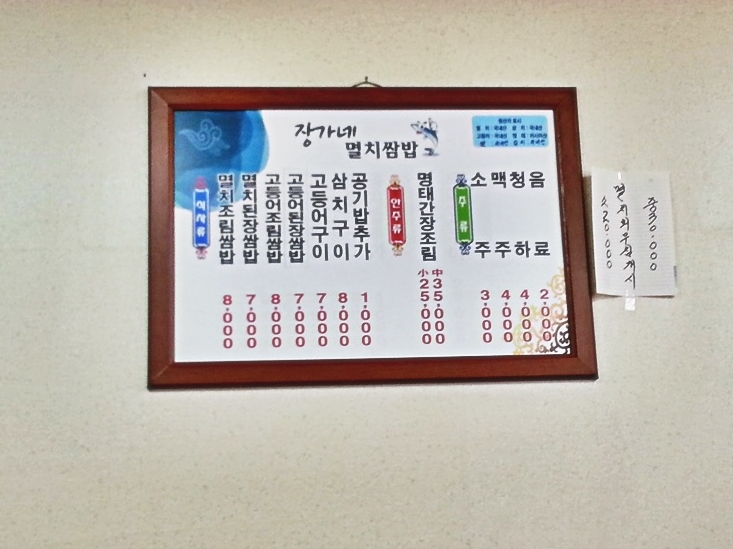 장가네
멸치쌈밥
원산지 표시
식사류
멸치조림쌈밥 8,000
멸치된장쌈밥 7,000
고등어조림쌈밥 8,000
고등어된장쌈밥 7,000
고등어구이 7,000
삼치구이 8,000
공기밥추가 1,000
안주류
명태간장조림
小 25,000
中 35,000
주류
소주 3,000
맥주 4,000
청하 4,000
음료 2,000
멸치회무침개시
中30.000
小20.000